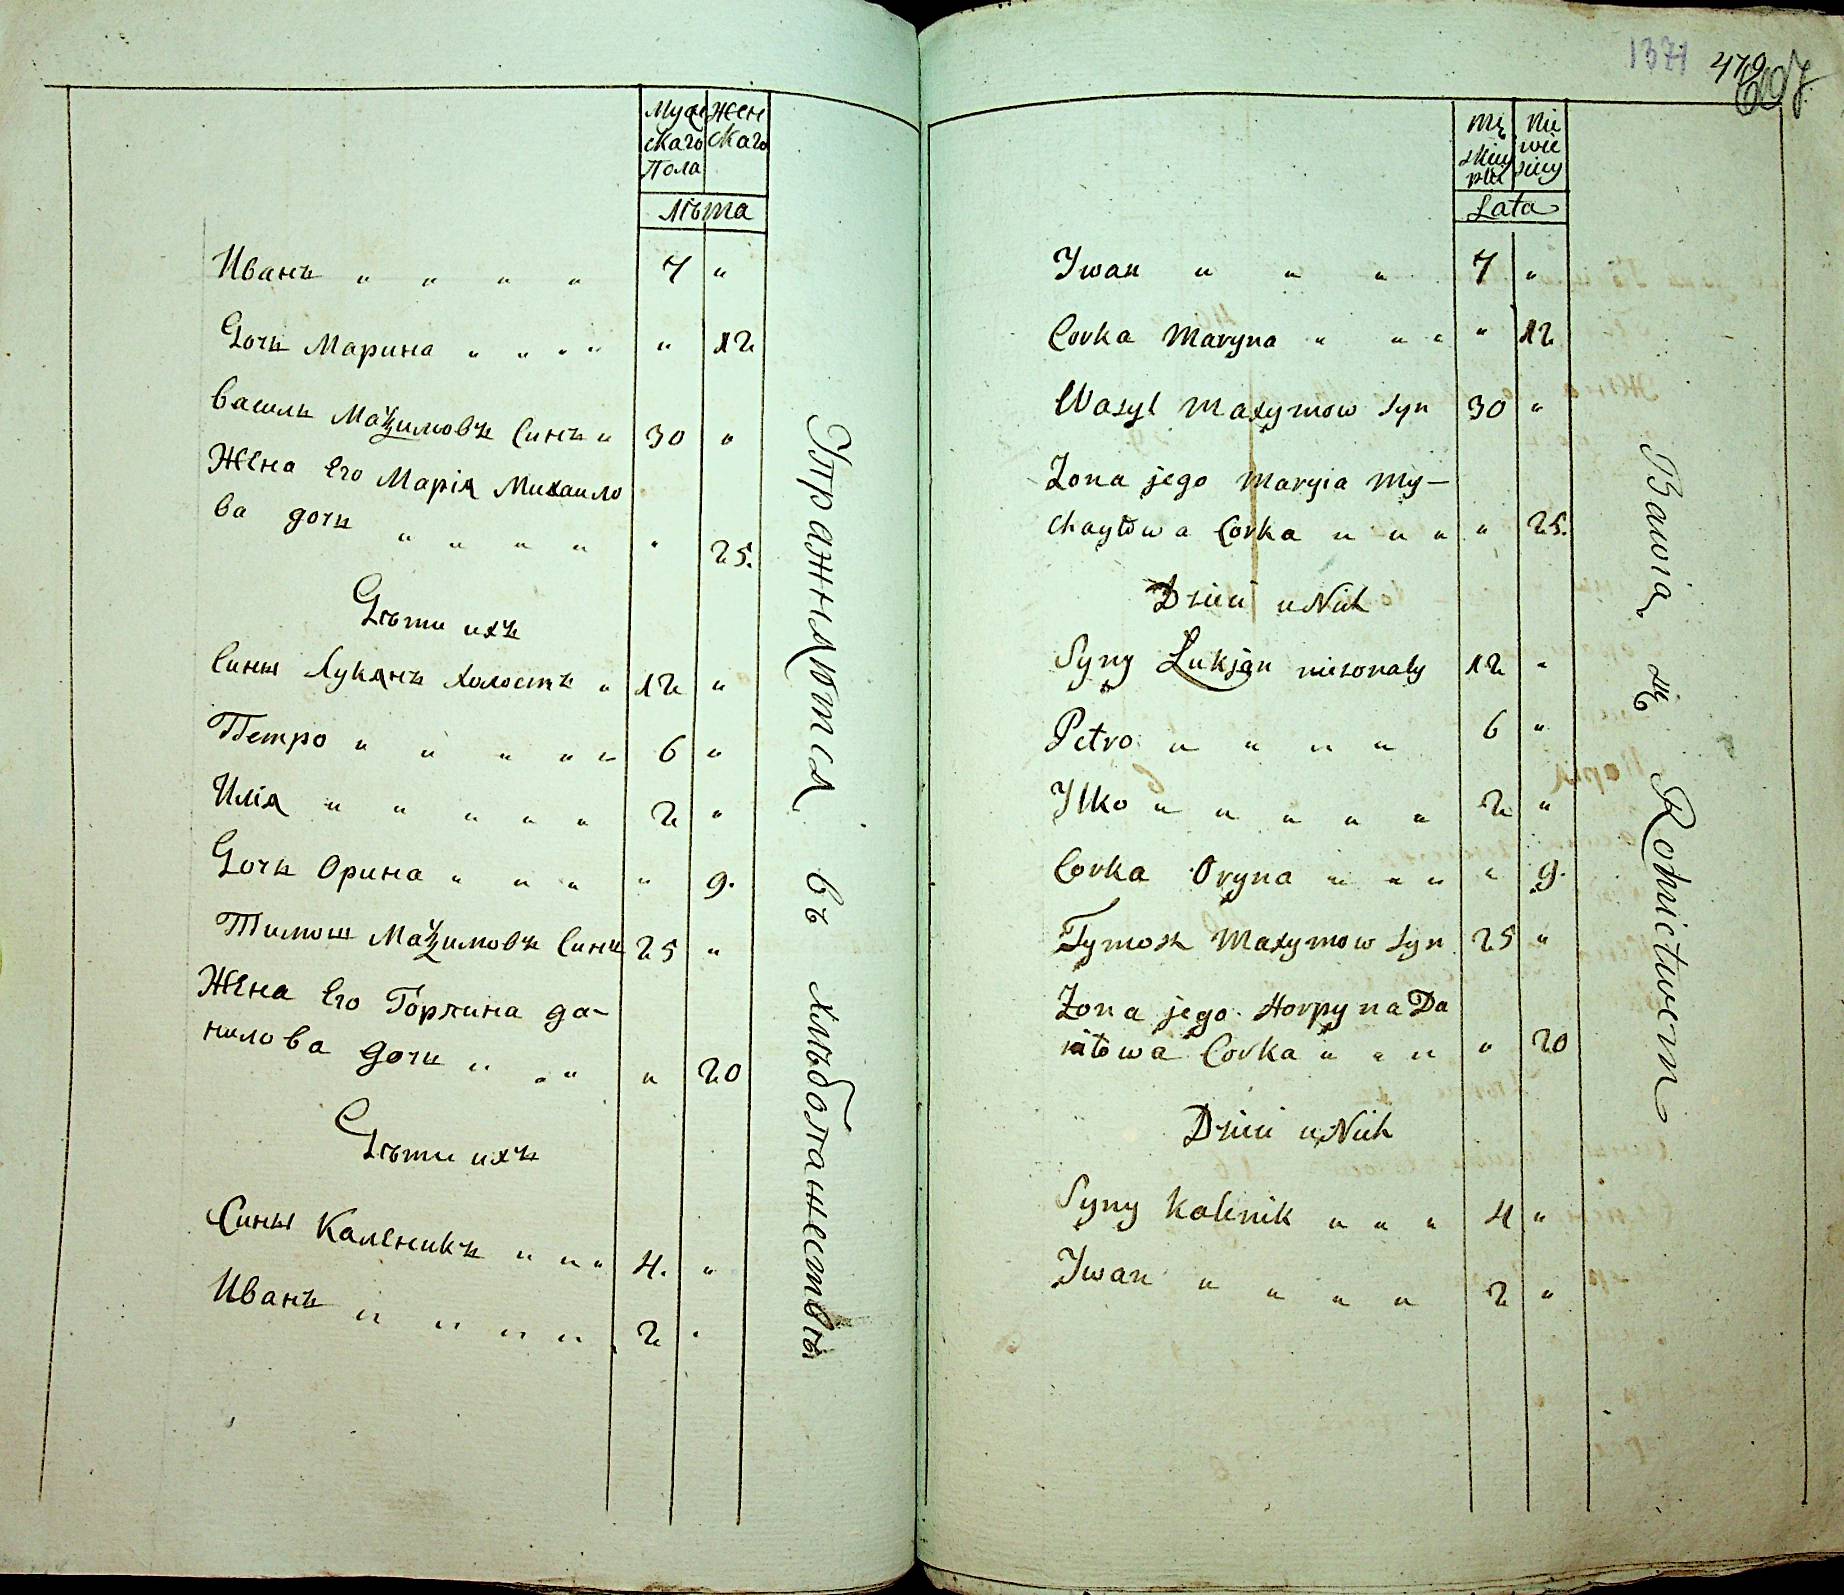 Мужскаго Пола
Женскаго
Лѣта
Иванъ " " " " 7 "
Дочь Марина " " " " " 12
Василь Маѯимовъ Синъ " 30 "
Жена Его Марія Михаило
ва дочь " " " " " 25.
Дѣти ихъ
Сины Лукянъ холостъ " 12 "
Петро " " " " " 6 "
Илія " " " " " 2 "
Дочь Орина " " " " 9.
Тимош Маѯимовъ Синъ 25 "
Жена Его Горпина да-
нилова дочь " " " " 20
Дѣти ихъ
Сины Каленикъ " " " 4. "
Иванъ " " " " 2 "
Упражняются въ хлѣбопашествѣ
1371 479
Męskiey płci
Niewieściey
Lata
Iwan " " " 7 "
Corka Maryna " " " " 12
Wasyl Maxymow Syn 30 "
Zona jego Maryia My-
chayłowa Corka " " " " 25.
Dzieci u Nich
Syny Lukjan niezonaty 12 "
Petro " " " " 6 "
Ilko " " " " " 2 "
Corka Oryna " " " " 9.
Tymosz Maxymow Syn 25 "
Zona jego Horpyna Da
niłowa Corka " " " " 20
Dzieci u Nich
Syny Kalenik " " " 4 "
Iwan " " " " 2 "
Bawią się Rolnictwem